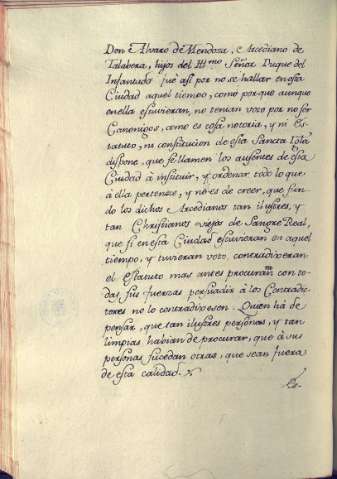 Don Alvaro de Mendosa, Arcediano de
Talabera, hijos del Ill.mo Señor Duque del
Infantado fue así por no se hallar en esta
Ciudad aquel tiempo, como porque aunque
en ella estuvieran, no tenian voto por no ser
Canonigos, como es cosa notoria, y ni Es-
tatuto, ni constitucion de esta Sancta Iglã
dispone, que se llamen los ausentes de esta
Ciudad à instituir, y ordenar todo lo que
à ella pertenese, y no es de creer, que sien-
do los dichos Arcedianos tan ilustres, y
tan Christianos viejos de Sangre Real,
que si en esta Ciudad estuvieran en aquel
tiempo, y tuvieran voto, contradixeran
el Estatuto mas antes procuraran con to-
das sus fuerzas persuadir à los Contradic-
tores no lo contradixesen. Quien há de
pensar, que tan ilustres personas, y tan
limpias habian de procurar, que à sus
personas sucedan otras, que sean fuera
de esta calidad.